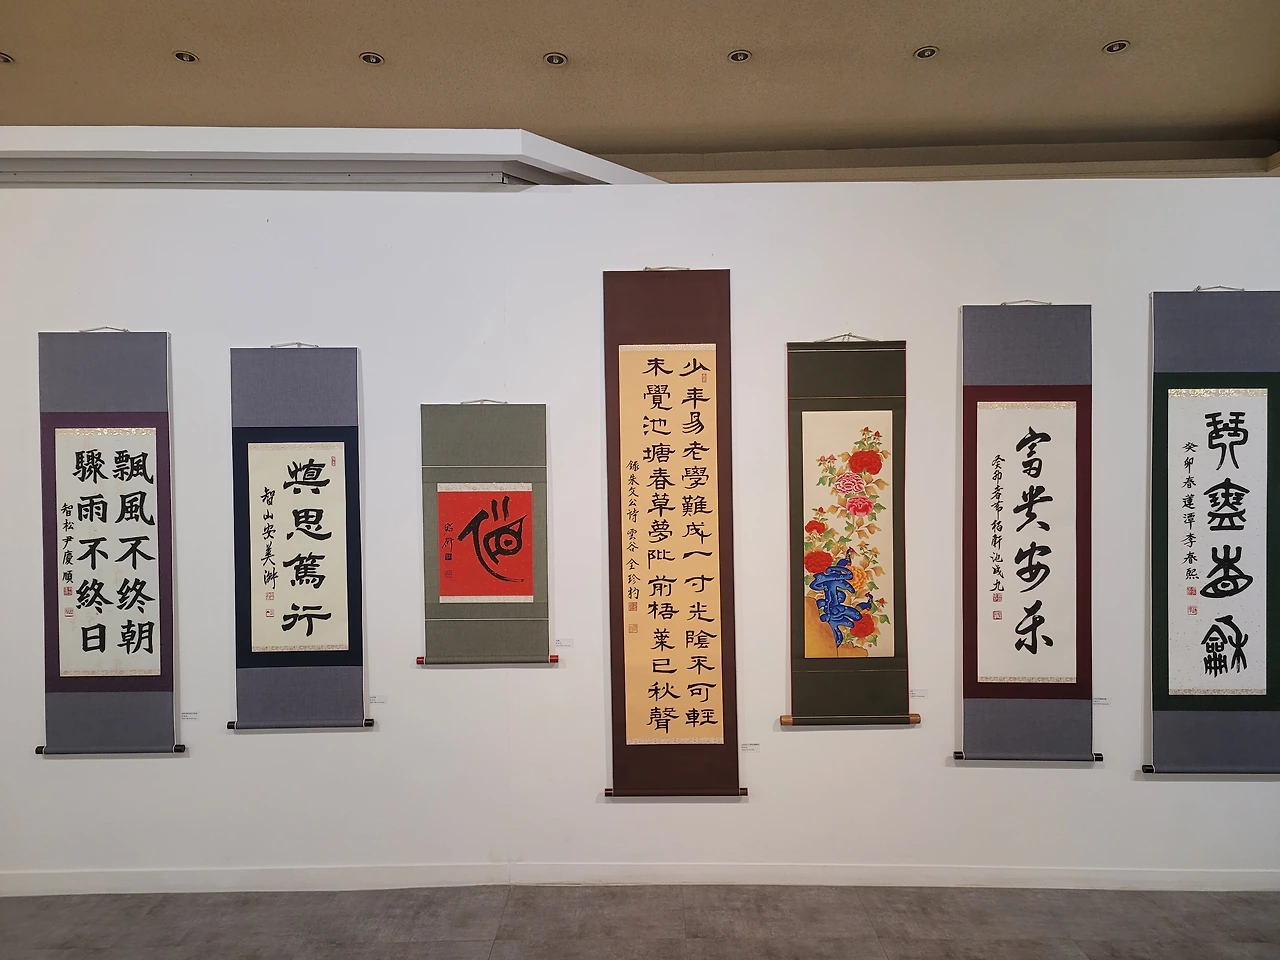 飄風不終朝
驟雨不終日
智松尹慶順
慎思篤行
智山安美
少年易老學難成一寸光陰不可輕
未覺池塘春草夢階前梧葉已秋聲
錄朱文公詩 雲谷 全珍杓
富貴安樂
癸卯春節 栢軒 池成九
癸卯春 蓮潭 李春熙